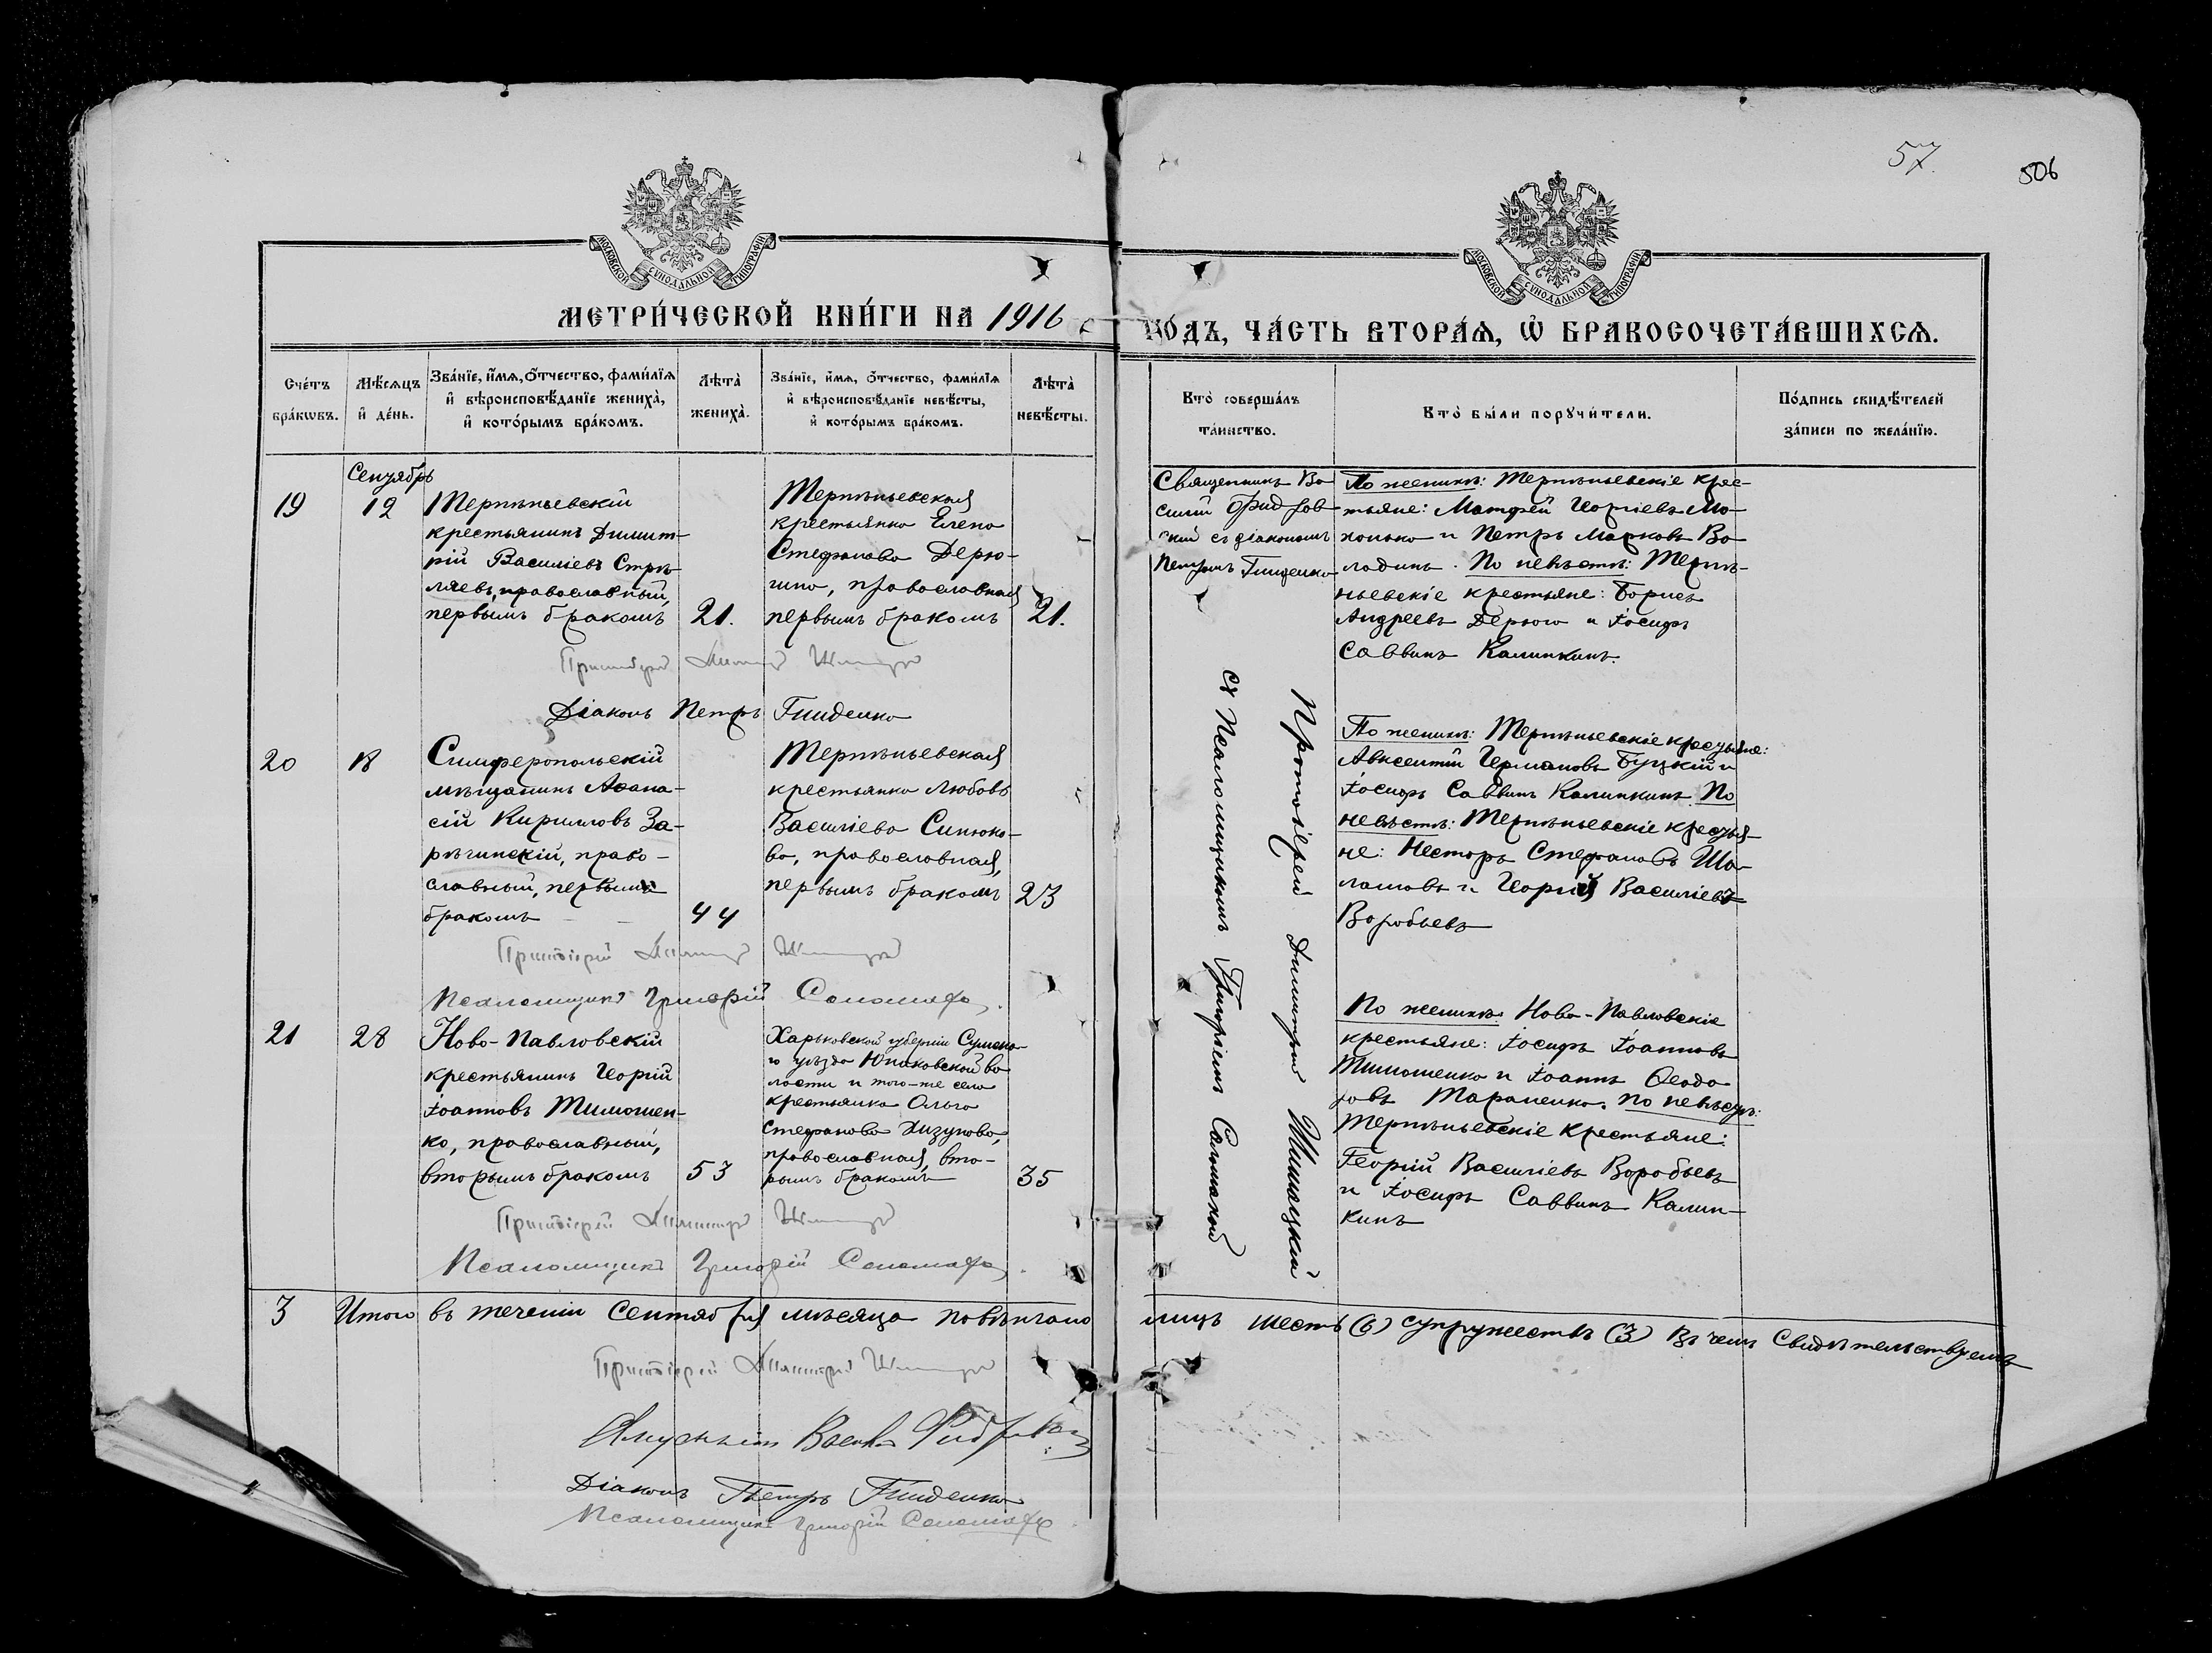 57.
506
МОСКОВСКОЙ СѴНОДАЛЬНОЙ ТИПОГРАФІИ
МОСКОВСКОЙ СѴНОДАЛЬНОЙ ТИПОГРАФІИ
МЕТРИ́ЧЕСКОЙ КНИ́ГИ НА 1916
ГО́ДЪ, ЧА́СТЬ ВТОРА́Ѧ, Ѡ҆ БРАКОСОЧЕТА́ВШИХСѦ.
Сче́тъ
бра́кѡвъ.
Мѣ́сѧцъ
и҆ де́нь.
Зва́нїе, и҆́мѧ, ѻ҆́тчество, фами́лїѧ
и҆ вѣроисповѣ́данїе жениха̀,
и҆ кото́рымъ бра́комъ.
Лѣта̀
жениха̀.
Зва́нїе, и҆́мѧ, ѻ҆́тчество, фами́лїѧ
и҆ вѣроисповѣ́данїе невѣ́сты,
и҆ кото́рымъ бра́комъ.
Лѣта̀
невѣ́сты.
Кто̀ соверша́лъ
та́инство.
Кто̀ бы́ли порꙋчи́тели.
По́дпись свидѣ́телей
за́писи по жела́нїю.
Сентябрь
19
12
Терпѣньевскій
крестьянинъ Димит-
рій Василіевъ Стрѣ-
ляевъ, православный,
первымъ бракомъ
21.
Терпѣньевская
крестьянка Елена
Стефанова Дерю-
гина, православная
первымъ бракомъ
21.
Священникъ Ва-
силій
скій съ діакономъ
Петромъ
По женихѣ: Терпѣньевскіе крес-
тьяне: Матфей Георгіевъ Мо-
холько и Петръ Марковъ Во-
лодинъ. По невѣстѣ: Терпѣ-
ньевскіе крестьяне: Борисъ
Андреевъ Дерюга и Іосифъ
Саввинъ Калинкинъ.
Протоіерей Димитрій
Діаконъ Петръ
20
18
Симферопольскій
мѣщанинъ Аѳана-
сій Кирилловъ За-
рѣчинскій, право-
славный, первымъ
бракомъ
44
Терпѣньевская
крестьянка Любовь
Василіева Синюко-
ва, православная,
первымъ бракомъ
23
Протоіерей Димитрій
съ Псаломщикомъ Григоріемъ Соломахой
По женихѣ: Терпѣньевскіе крестьяне:
Авксентій Германовъ Буцкій и
Іосифъ Саввинъ Калинкинъ. По
невѣстѣ: Терпѣньевскіе крестья-
не: Несторъ Стефановъ Ша-
ламовъ и Георгій Василіевъ
Воробьевъ
Протоіерей Димитрій
Псаломщикъ Григорій Соломаха.
21
28
Ново-Павловскій
крестьянинъ Георгій
Іоанновъ Тимошен-
ко, православный,
вторымъ бракомъ
53
Харьковской губерніи Сумска-
го уѣзда Юнаковской во-
лости и того-же села
крестьянка Ольга
Стефанова
православная, вто-
рымъ бракомъ
35
По женихѣ: Ново-Павловскіе
крестьяне: Іосифъ Іоанновъ
Тимошенко и Іоаннъ Ѳеодо-
ровъ Тараненко. По невѣстѣ:
Терпѣньевскіе крестьяне:
Георгій Василіевъ Воробьевъ
и Іосифъ Саввинъ Калин-
кинъ
Протоіерей Димитрій
Псаломщикъ Григорій Соломаха.
3 Итого въ теченіи Сентября мѣсяца повѣнчано лицъ шесть (6) супружествъ (3) Въ чемъ свидѣтельствуемъ
Протоіерей Димитрій
Діаконъ Петръ
Псаломщикъ Григорій Соломаха